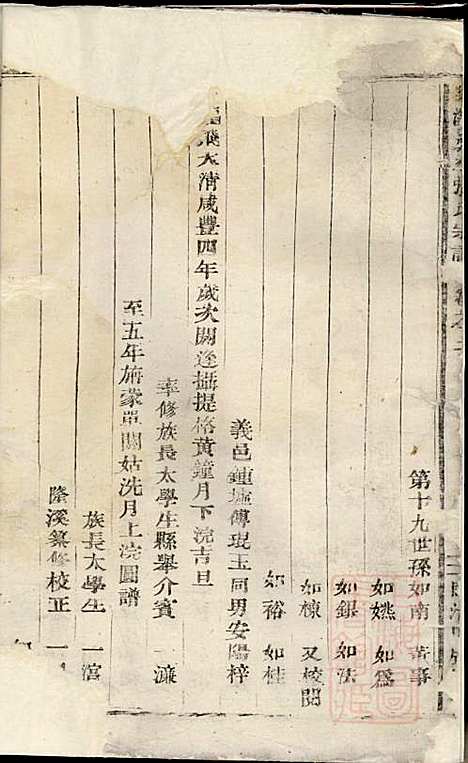 張氏宗譜
第十九世孫如南
如嬈 如爲
如銀 如法
如棟 又校閱
如裕 如桂
義邑鍾墟傅琨玉同男安陽梓
飛大清咸豐四年歲次閼逢攝提格黃鐘月下浣吉旦
率修族長太學生縣舉介賓 濂
至五年旃蒙單閼姑洗月上浣圓譜
族長太學生 一
隆溪纂修校正 一